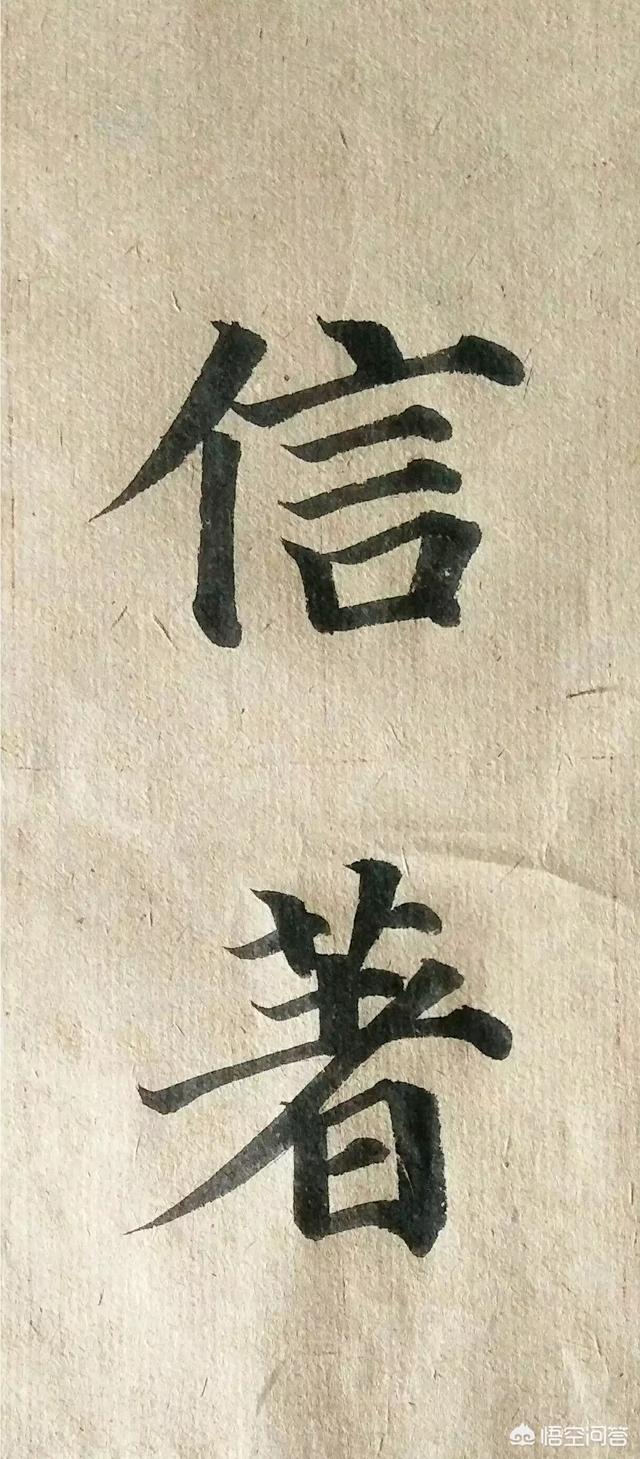 信
著
悟空问答